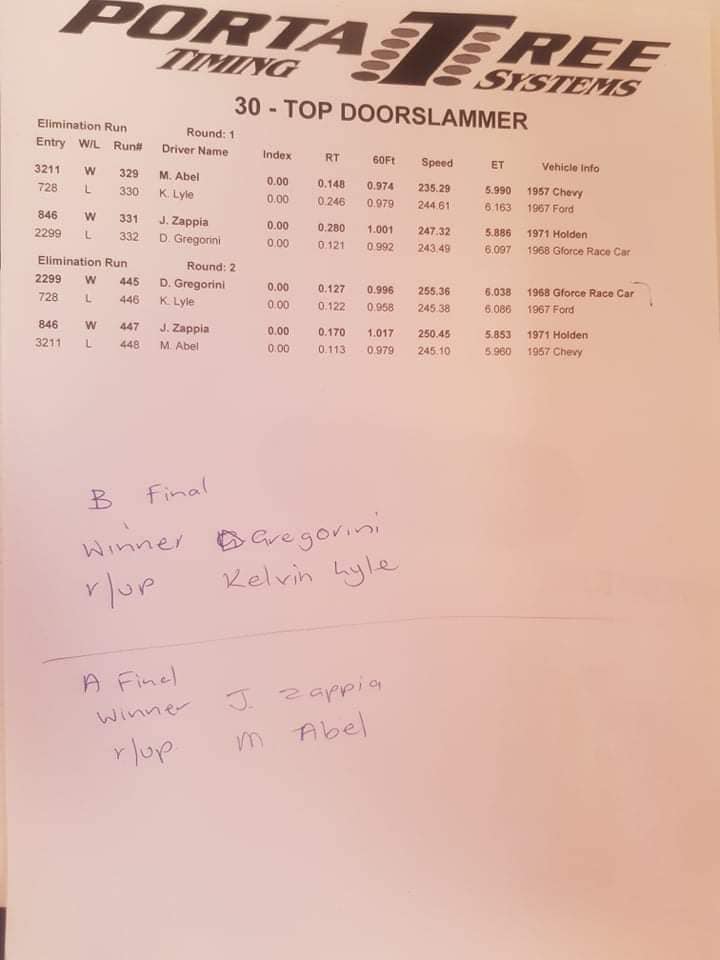 PORTA TREE
TIMING SYSTEMS
30 - TOP DOORSLAMMER
Elimination Run Round: 1
Entry W/L Run# Driver Name Index RT 60Ft Speed ET Vehicle Info
3211 W 329 M. Abel 0.00 0.148 0.974 235.29 5.990 1957 Chevy
728 L 330 K. Lyle 0.00 0.246 0.979 244.61 6.163 1967 Ford
846 W 331 J. Zappia 0.00 0.280 1.001 247.32 5.886 1971 Holden
2299 L 332 D. Gregorini 0.00 0.121 0.992 243.49 6.097 1968 Gforce Race Car
Elimination Run Round: 2
2299 W 445 D. Gregorini 0.00 0.127 0.996 255.36 6.038 1968 Gforce Race Car
728 L 446 K. Lyle 0.00 0.122 0.958 245.38 6.086 1967 Ford
846 W 447 J. Zappia 0.00 0.170 1.017 250.45 5.853 1971 Holden
3211 L 448 M. Abel 0.00 0.113 0.979 245.10 5.960 1957 Chevy
B Final
Winner Gregorini
r/up Kelvin Lyle
A Final
Winner J. Zappia
r/up M Abel